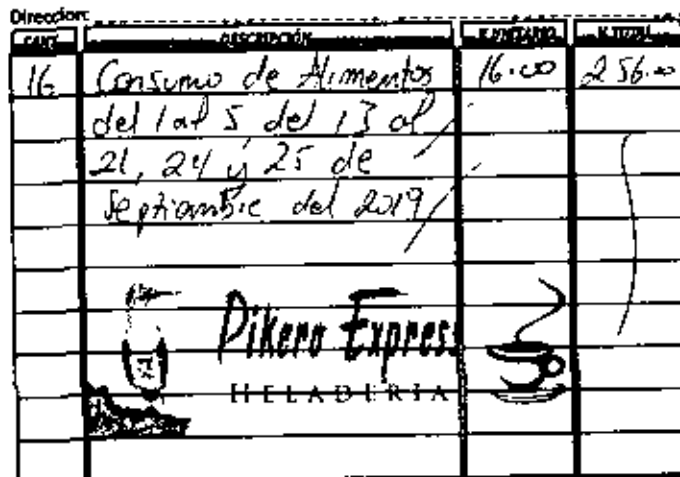 Direccion:
CANT. DESCRIPCIÓN V. UNITARIO V. TOTAL
16 Consumo de Alimentos 16.00 256.00
del 1 al 5 del 13 al
21, 24 y 25 de
Septiembre del 2019
Pikero Express
HELADERIA